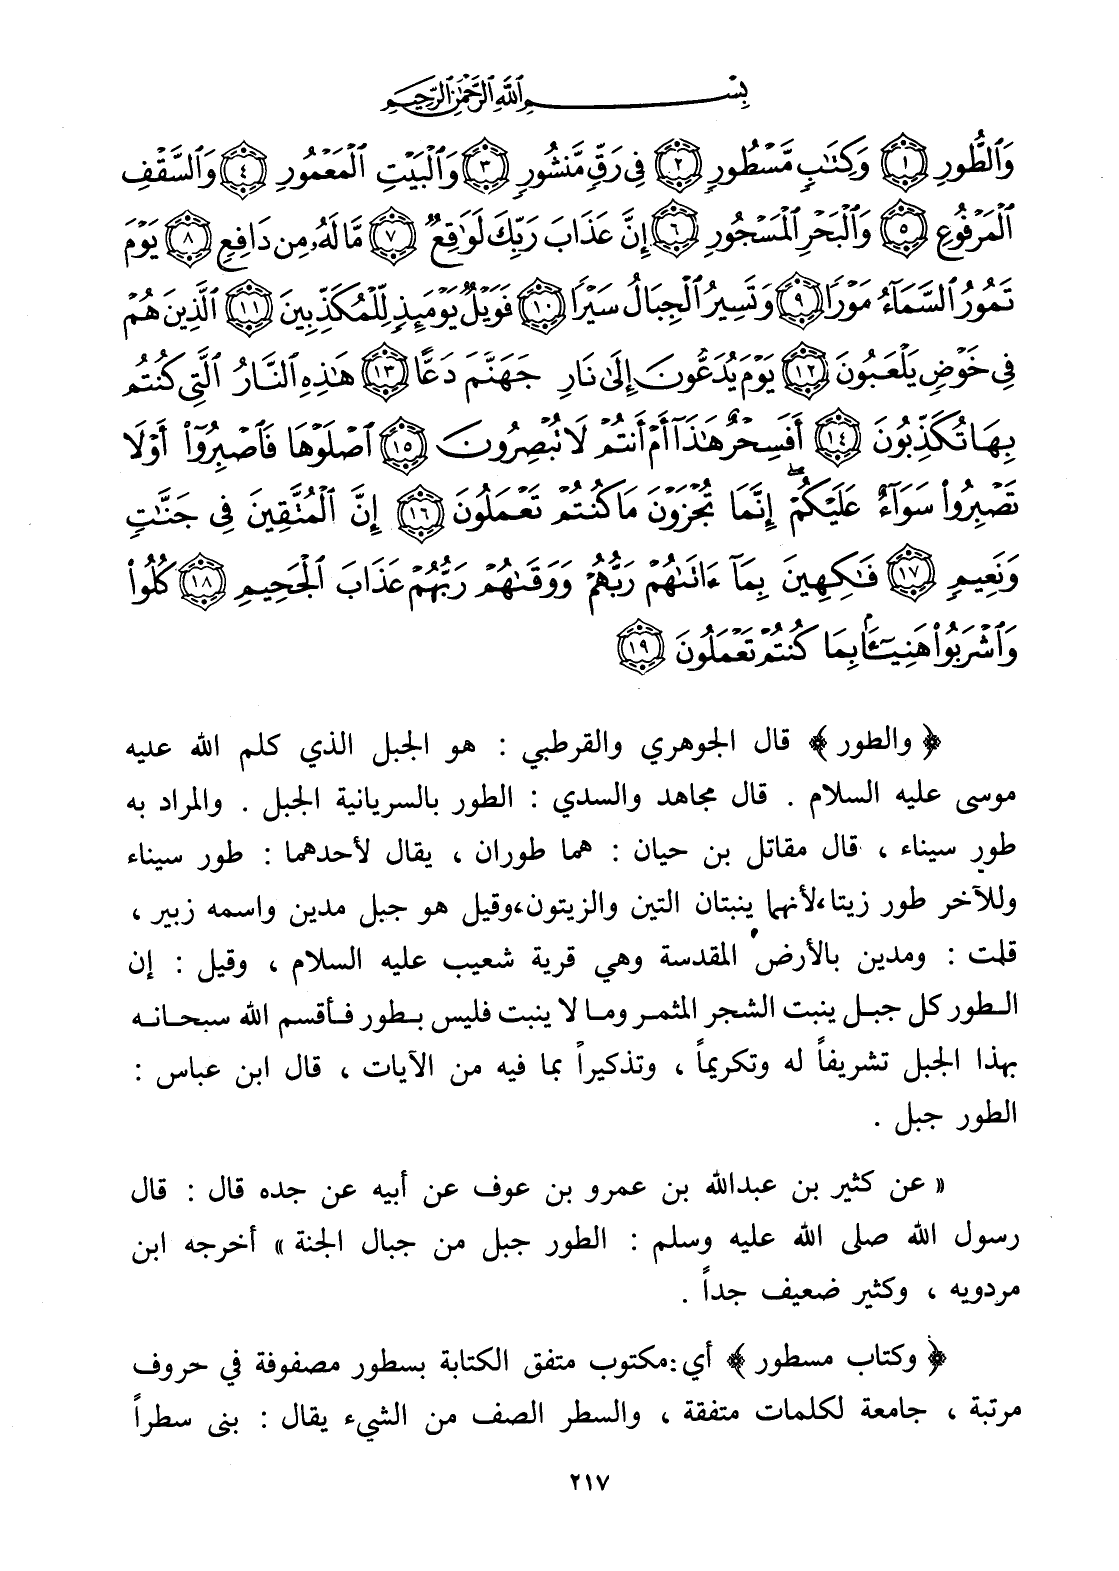 بِسْمِ ٱللَّهِ ٱلرَّحْمَٰنِ ٱلرَّحِيمِ
وَٱلطُّورِ ١ وَكِتَٰبٍ مَّسْطُورٍ ٢ فِى رَقٍّ مَّنشُورٍ ٣ وَٱلْبَيْتِ ٱلْمَعْمُورِ ٤ وَٱلسَّقْفِ
ٱلْمَرْفُوعِ ٥ وَٱلْبَحْرِ ٱلْمَسْجُورِ ٦ إِنَّ عَذَابَ رَبِّكَ لَوَٰقِعٌ ٧ مَّا لَهُۥ مِن دَافِعٍ ٨ يَوْمَ
تَمُورُ ٱلسَّمَآءُ مَوْرًا ٩ وَتَسِيرُ ٱلْجِبَالُ سَيْرًا ١٠ فَوَيْلٌ يَوْمَئِذٍ لِّلْمُكَذِّبِينَ ١١ ٱلَّذِينَ هُمْ
فِى خَوْضٍ يَلْعَبُونَ ١٢ يَوْمَ يُدَعُّونَ إِلَىٰ نَارِ جَهَنَّمَ دَعًّا ١٣ هَٰذِهِ ٱلنَّارُ ٱلَّتِى كُنتُم
بِهَا تُكَذِّبُونَ ١٤ أَفَسِحْرٌ هَٰذَآ أَمْ أَنتُمْ لَا تُبْصِرُونَ ١٥ ٱصْلَوْهَا فَٱصْبِرُوٓا۟ أَوْ لَا
تَصْبِرُوا۟ سَوَآءٌ عَلَيْكُمْ ۖ إِنَّمَا تُجْزَوْنَ مَا كُنتُمْ تَعْمَلُونَ ١٦ إِنَّ ٱلْمُتَّقِينَ فِى جَنَّٰتٍ
وَنَعِيمٍ ١٧ فَٰكِهِينَ بِمَآ ءَاتَىٰهُمْ رَبُّهُمْ وَوَقَىٰهُمْ رَبُّهُمْ عَذَابَ ٱلْجَحِيمِ ١٨ كُلُوا۟
وَٱشْرَبُوا۟ هَنِيٓـًٔۢا بِمَا كُنتُمْ تَعْمَلُونَ ١٩
﴿ والطور ﴾ قال الجوهري والقرطبي : هو الجبل الذي كلم الله عليه
موسى عليه السلام . قال مجاهد والسدي : الطور بالسريانية الجبل . والمراد به
طور سيناء ، قال مقاتل بن حيان : هما طوران ، يقال لأحدهما : طور سيناء
وللآخر طور زيتا، لأنهما ينبتان التين والزيتون، وقيل هو جبل مدين واسمه زبير ،
قلت : ومدين بالأرض المقدسة وهي قرية شعيب عليه السلام ، وقيل : إن
الطور كل جبل ينبت الشجر المثمر وما لا ينبت فليس بطور فأقسم الله سبحانه
بهذا الجبل تشريفاً له وتكريماً ، وتذكيراً بما فيه من الآيات ، قال ابن عباس :
الطور جبل .
« عن كثير بن عبدالله بن عمرو بن عوف عن أبيه عن جده قال : قال
رسول الله صلى الله عليه وسلم : الطور جبل من جبال الجنة » أخرجه ابن
مردويه ، وكثير ضعيف جداً .
﴿ وكتاب مسطور ﴾ أي: مكتوب متفق الكتابة بسطور مصفوفة في حروف
مرتبة ، جامعة لكلمات متفقة ، والسطر الصف من الشيء يقال : بنى سطراً
٢١٧